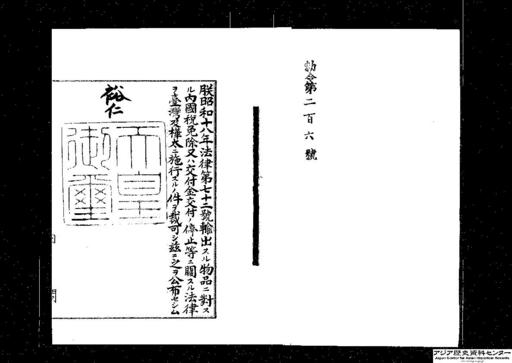 勅令第二百六號
朕昭和十八年法律第七十二號輸出スル物品ニ對ス
ル內國税免除又ハ交付金交付ノ停止等ニ關スル法律
ヲ臺灣及樺太ニ施行スルノ件ヲ裁可シ茲ニ之ヲ公布セシム
裕仁
天皇御璽
アジア歴史資料センター
Japan Center for Asian Historical Records